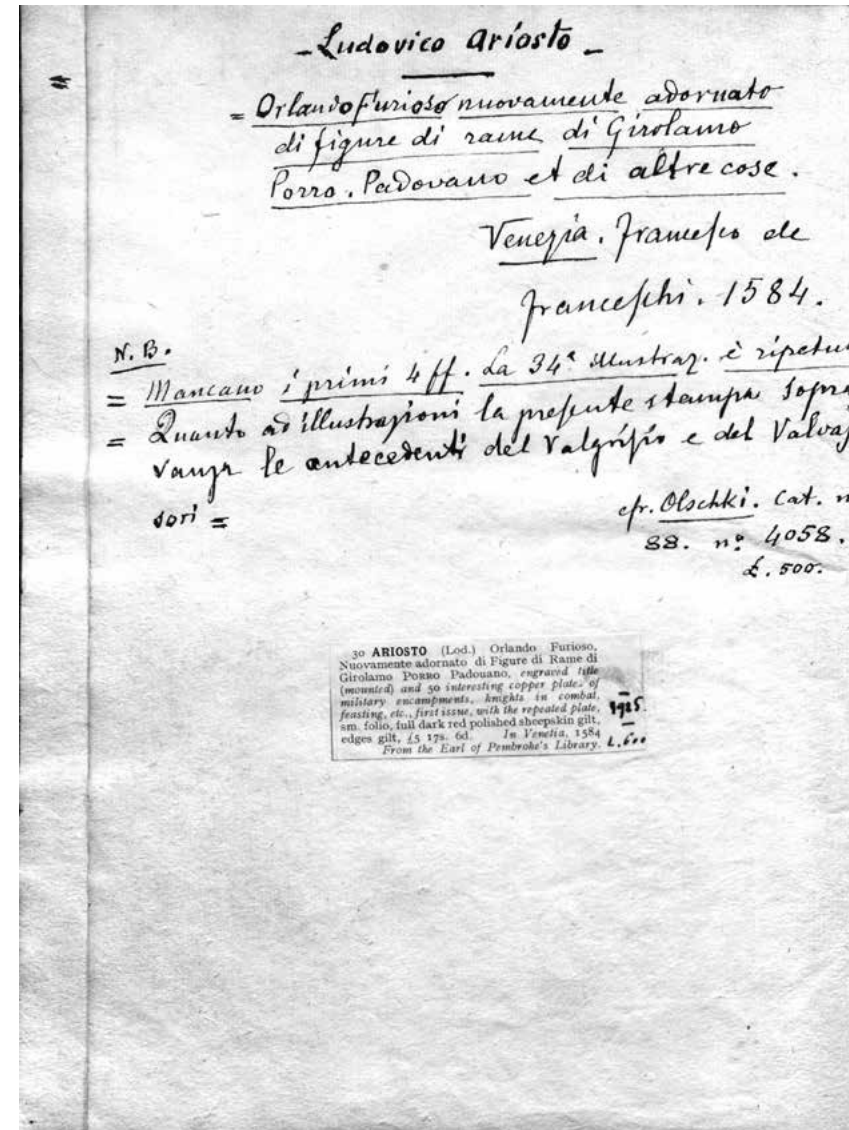 - Ludovico Ariosto -
= Orlando Furioso nuovamente adornato
di figure di rame di Girolamo
Porro. Padovano et di altre cose.
Venezia. Francesco de
Franceschi. 1584.
N. B.
= Mancano i primi 4 ff. La 34ª illustraz. è ripetu
= Quanto ad illustrazioni la presente stampa sopra
vanza le antecedenti del Valgrisio e del Valvas
sori =
cfr. Olschki. Cat. n
88. nº 4058.
£. 500.
30 ARIOSTO (Lod.) Orlando Furioso,
Nuovamente adornato di Figure di Rame di
Girolamo PORRO Padouano, engraved title
(mounted) and 50 interesting copper plates of
military encampments, knights in combat,
feasting, etc., first issue, with the repeated plate,
sm. folio, full dark red polished sheepskin gilt,
edges gilt, £5 17s. 6d. In Venetia, 1584
From the Earl of Pembroke's Library.
1925.
L. 600